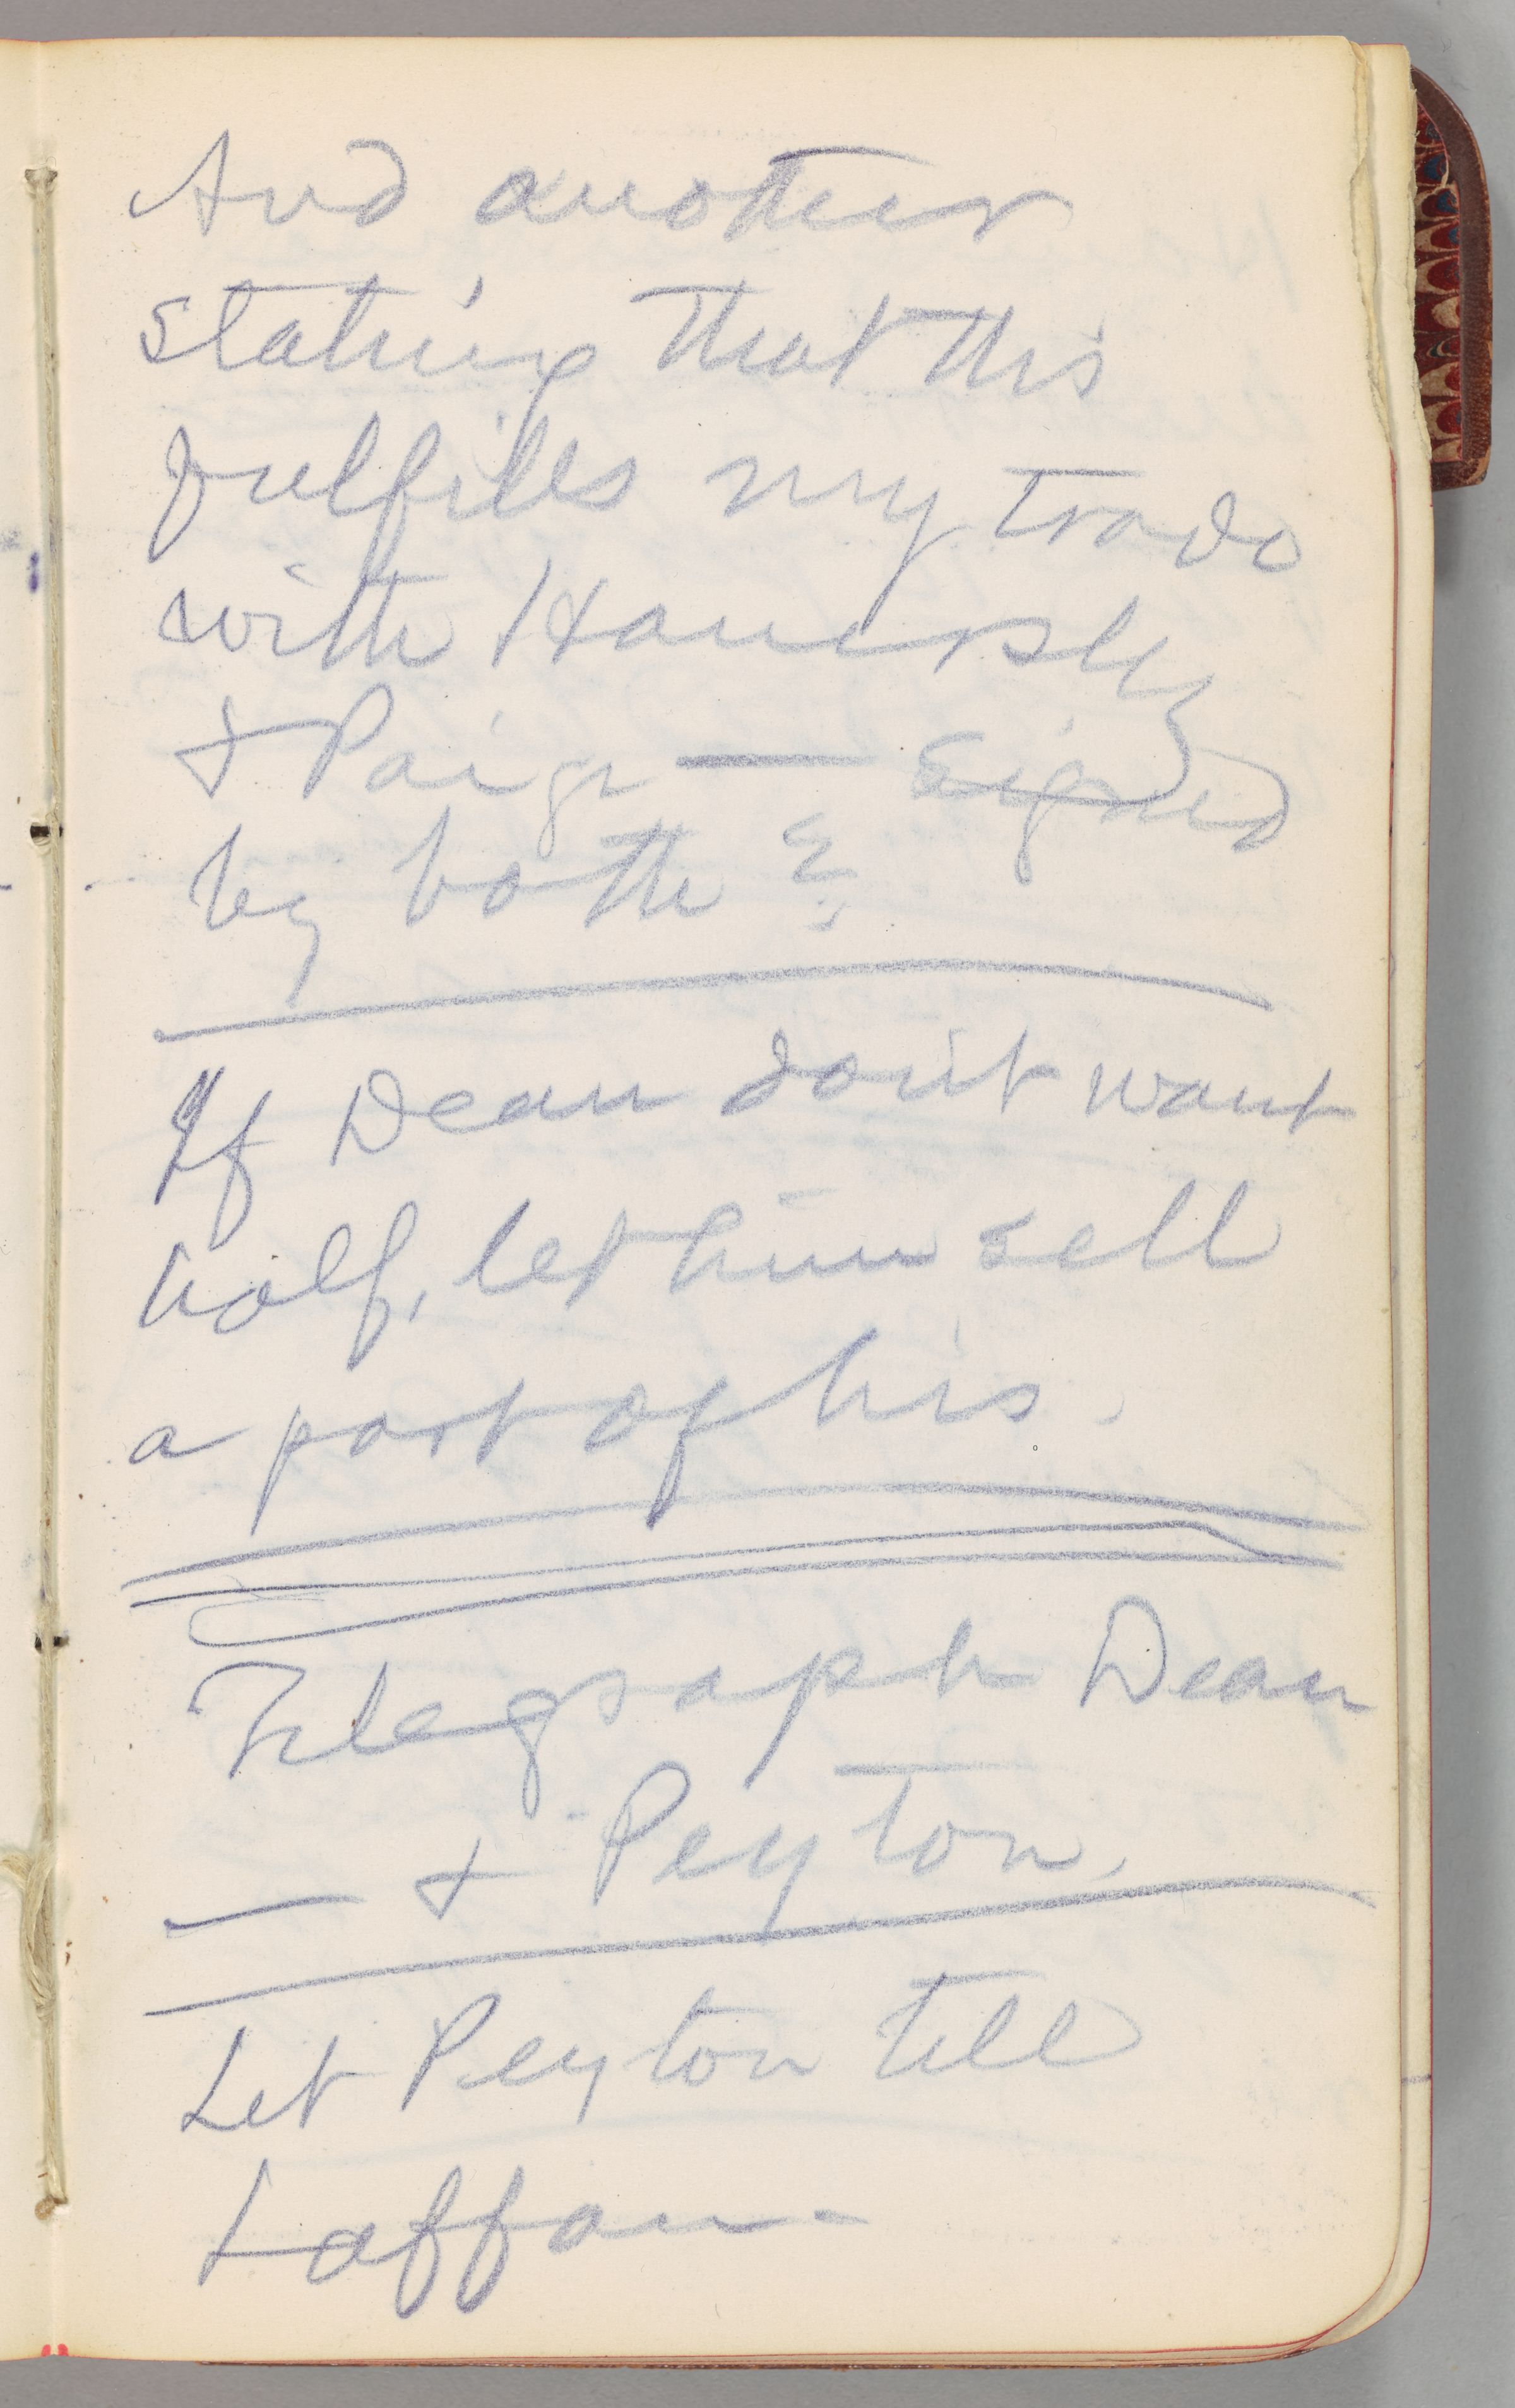 And another
stating that this
fulfills my trade
with Hamersley
& Paige — Signed
by both?
If Dean don't want
half, let him sell
a part of his.
Telegraph Dean
— & Peyton.
Let Peyton tell
Laffan.